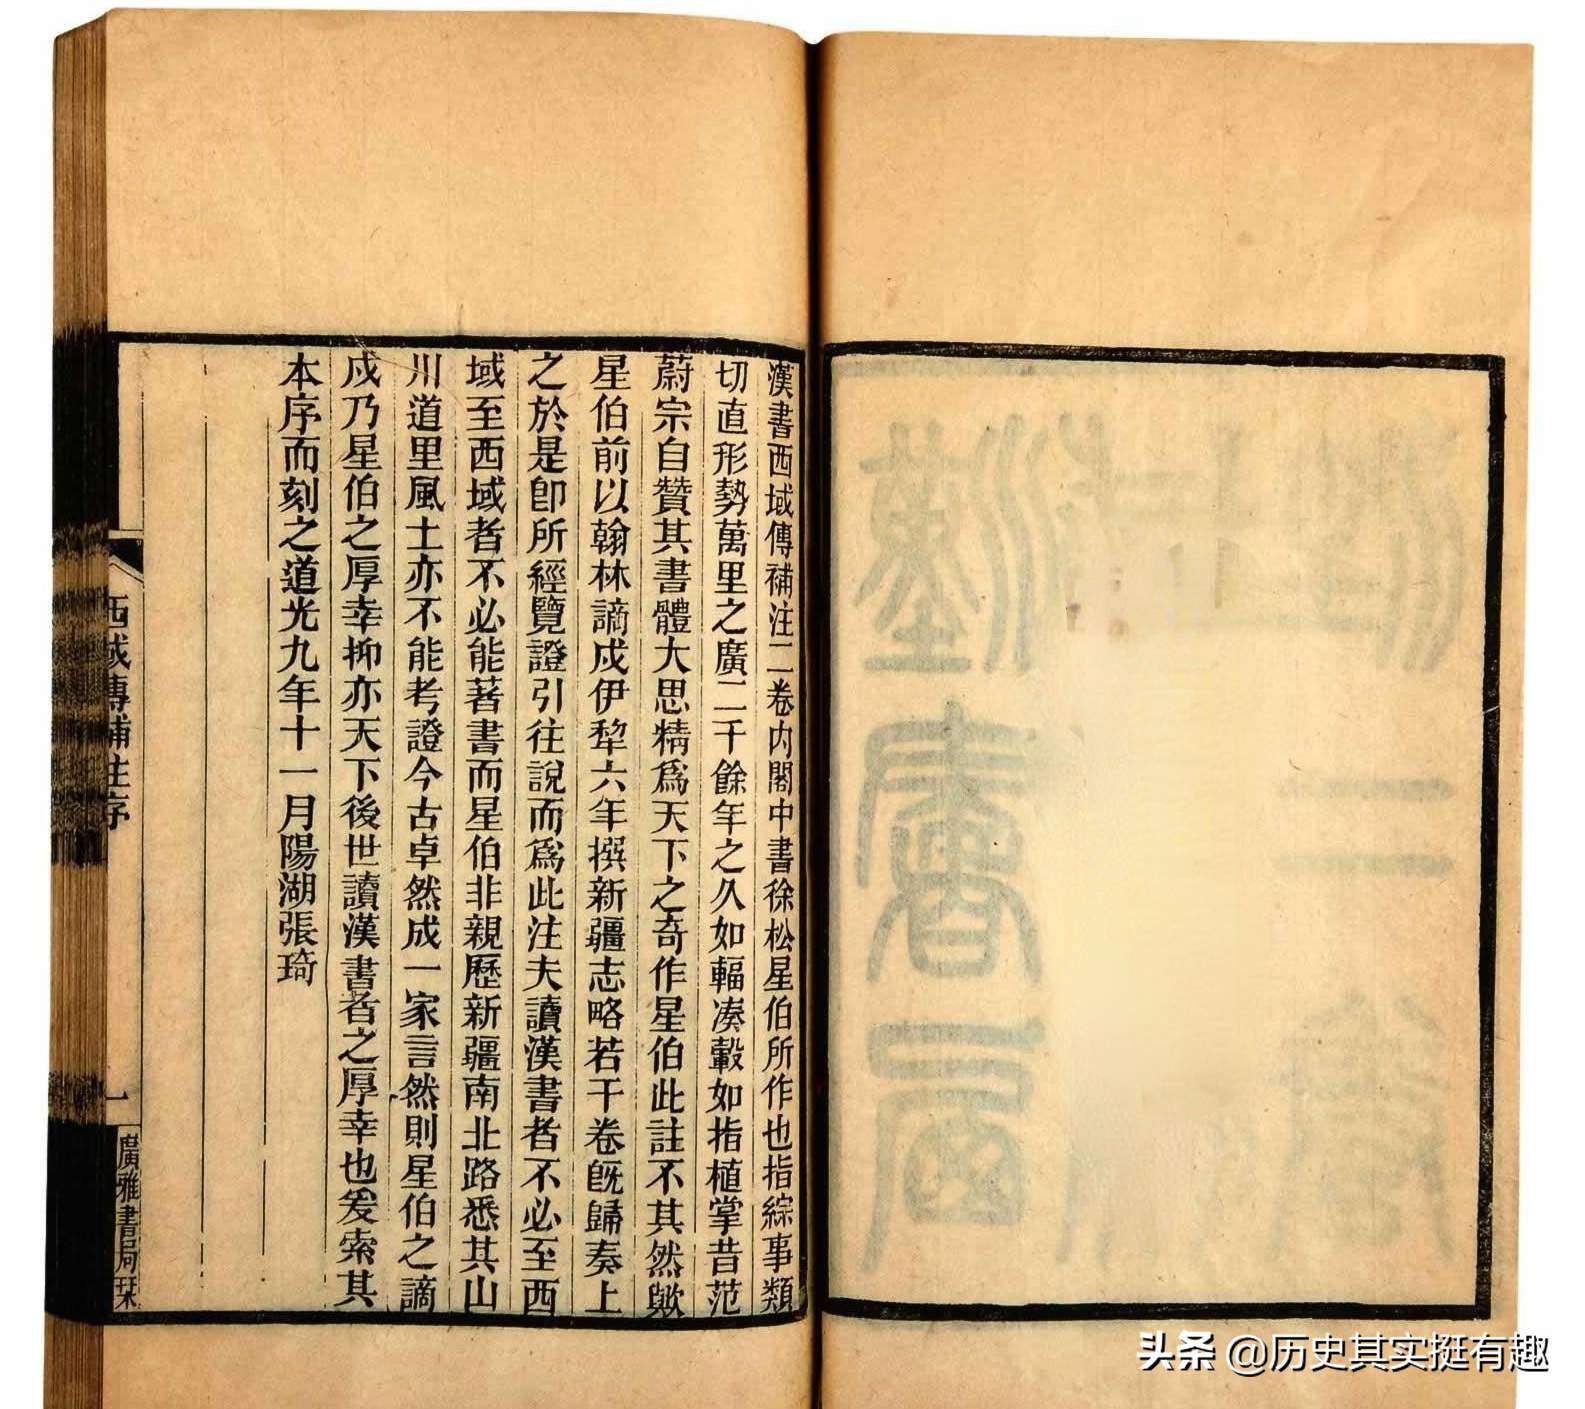 漢書西域傳補注二卷內閣中書徐松星伯所作也指綜事類
切直形勢萬里之廣二千餘年之久如輻凑轂如指植掌昔范
蔚宗自贊其書體大思精爲天下之奇作星伯此註不其然歟
星伯前以翰林謫戍伊犂六年撰新疆志略若干卷旣歸奏上
之於是卽所經覽證引往說而爲此注夫讀漢書者不必至西
域至西域者不必能著書而星伯非親歷新疆南北路悉其山
川道里風土亦不能考證今古卓然成一家言然則星伯之謫
戍乃星伯之厚幸抑亦天下後世讀漢書者之厚幸也爰索其
本序而刻之道光九年十一月陽湖張琦
西域傳補注序
一
廣雅書局栞
头条 @历史其实挺有趣